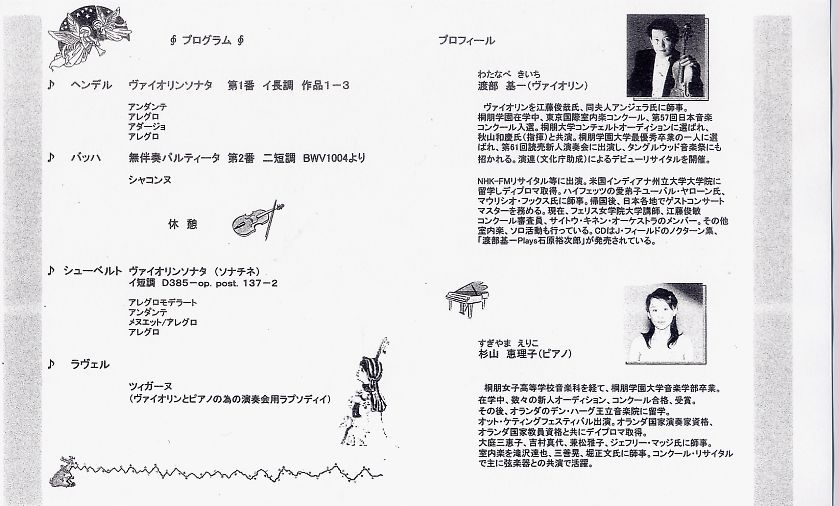 ∮ プログラム ∮
♪ ヘンデル ヴァイオリンソナタ 第1番 イ長調 作品1－3
アンダンテ
アレグロ
アダージョ
アレグロ
♪ バッハ 無伴奏パルティータ 第2番 二短調 BWV1004より
シャコンヌ
休 憩
♪ シューベルト ヴァイオリンソナタ（ソナチネ）
イ短調 D385－op. post. 137－2
アレグロモデラート
アンダンテ
メヌエット/アレグロ
アレグロ
♪ ラヴェル
ツィガーヌ
（ヴァイオリンとピアノの為の演奏会用ラプソディイ）
プロフィール
わたなべ きいち
渡部 基一（ヴァイオリン）
ヴァイオリンを江藤俊哉氏、同夫人アンジェラ氏に師事。
桐朋学園在学中、東京国際室内楽コンクール、第57回日本音楽
コンクール入選。桐朋大学コンチェルトオーディションに選ばれ、
秋山和慶氏（指揮）と共演。桐朋学園大学最優秀卒業の一人に選
ばれ、第61回読売新人演奏会に出演し、タングルウッド音楽祭にも
招かれる。演連（文化庁助成）によるデビューリサイタルを開催。
NHK-FMリサイタル等に出演。米国インディアナ州立大学大学院に
留学しディプロマ取得。ハイフェッツの愛弟子ユーバル・ヤローン氏、
マウリシオ・フックス氏に師事。帰国後、日本各地でゲストコンサート
マスターを務める。現在、フェリス女学院大学講師、江藤俊哉
コンクール審査員、サイトウ・キネン・オーケストラのメンバー。その他
室内楽、ソロ活動も行っている。CDはJ・フィールドのノクターン集、
「渡部基一Plays石原裕次郎」が発売されている。
すぎやま えりこ
杉山 恵理子（ピアノ）
桐朋女子高等学校音楽科を経て、桐朋学園大学音楽学部卒業。
在学中、数々の新人オーディション、コンクール合格、受賞。
その後、オランダのデン・ハーグ王立音楽院に留学。
オット・ケティングフェスティバル出演。オランダ国家演奏家資格、
オランダ国家教員資格と共にディプロマ取得。
大庭三恵子、吉村真代、兼松雅子、ジェフリー・マッジ氏に師事。
室内楽を滝沢達也、三善晃、堀正文氏に師事。コンクール・リサイタル
で主に弦楽器との共演で活躍。